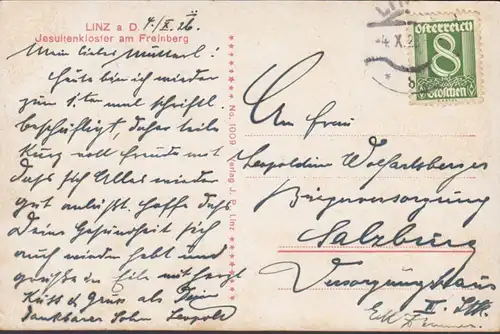 LINZ a D.
Jesuitenkloster am Freinberg
4./X. 26.
Mein liebes Mutterl!
Heute bin ich wieder
zum 1ten mal schriftl.
beschäftigt, daher teile
kurz voll Freude mit
daß sich Alles wieder
gut anläßt. Hoffe daß
Deine Gesundheit sich
auch wieder hebt und
grüße in Eile mit herzl.
Kuss & Gruss als Dein
dankbarer Sohn Leopold
No. 1009 Verlag J. P. Linz
Österreich
8
Groschen
4. X. 26
An Frau
Leopoldine Wolfartsberger
Bürgerversorgung
Salzburg
Versorgungshaus
II. Stk.